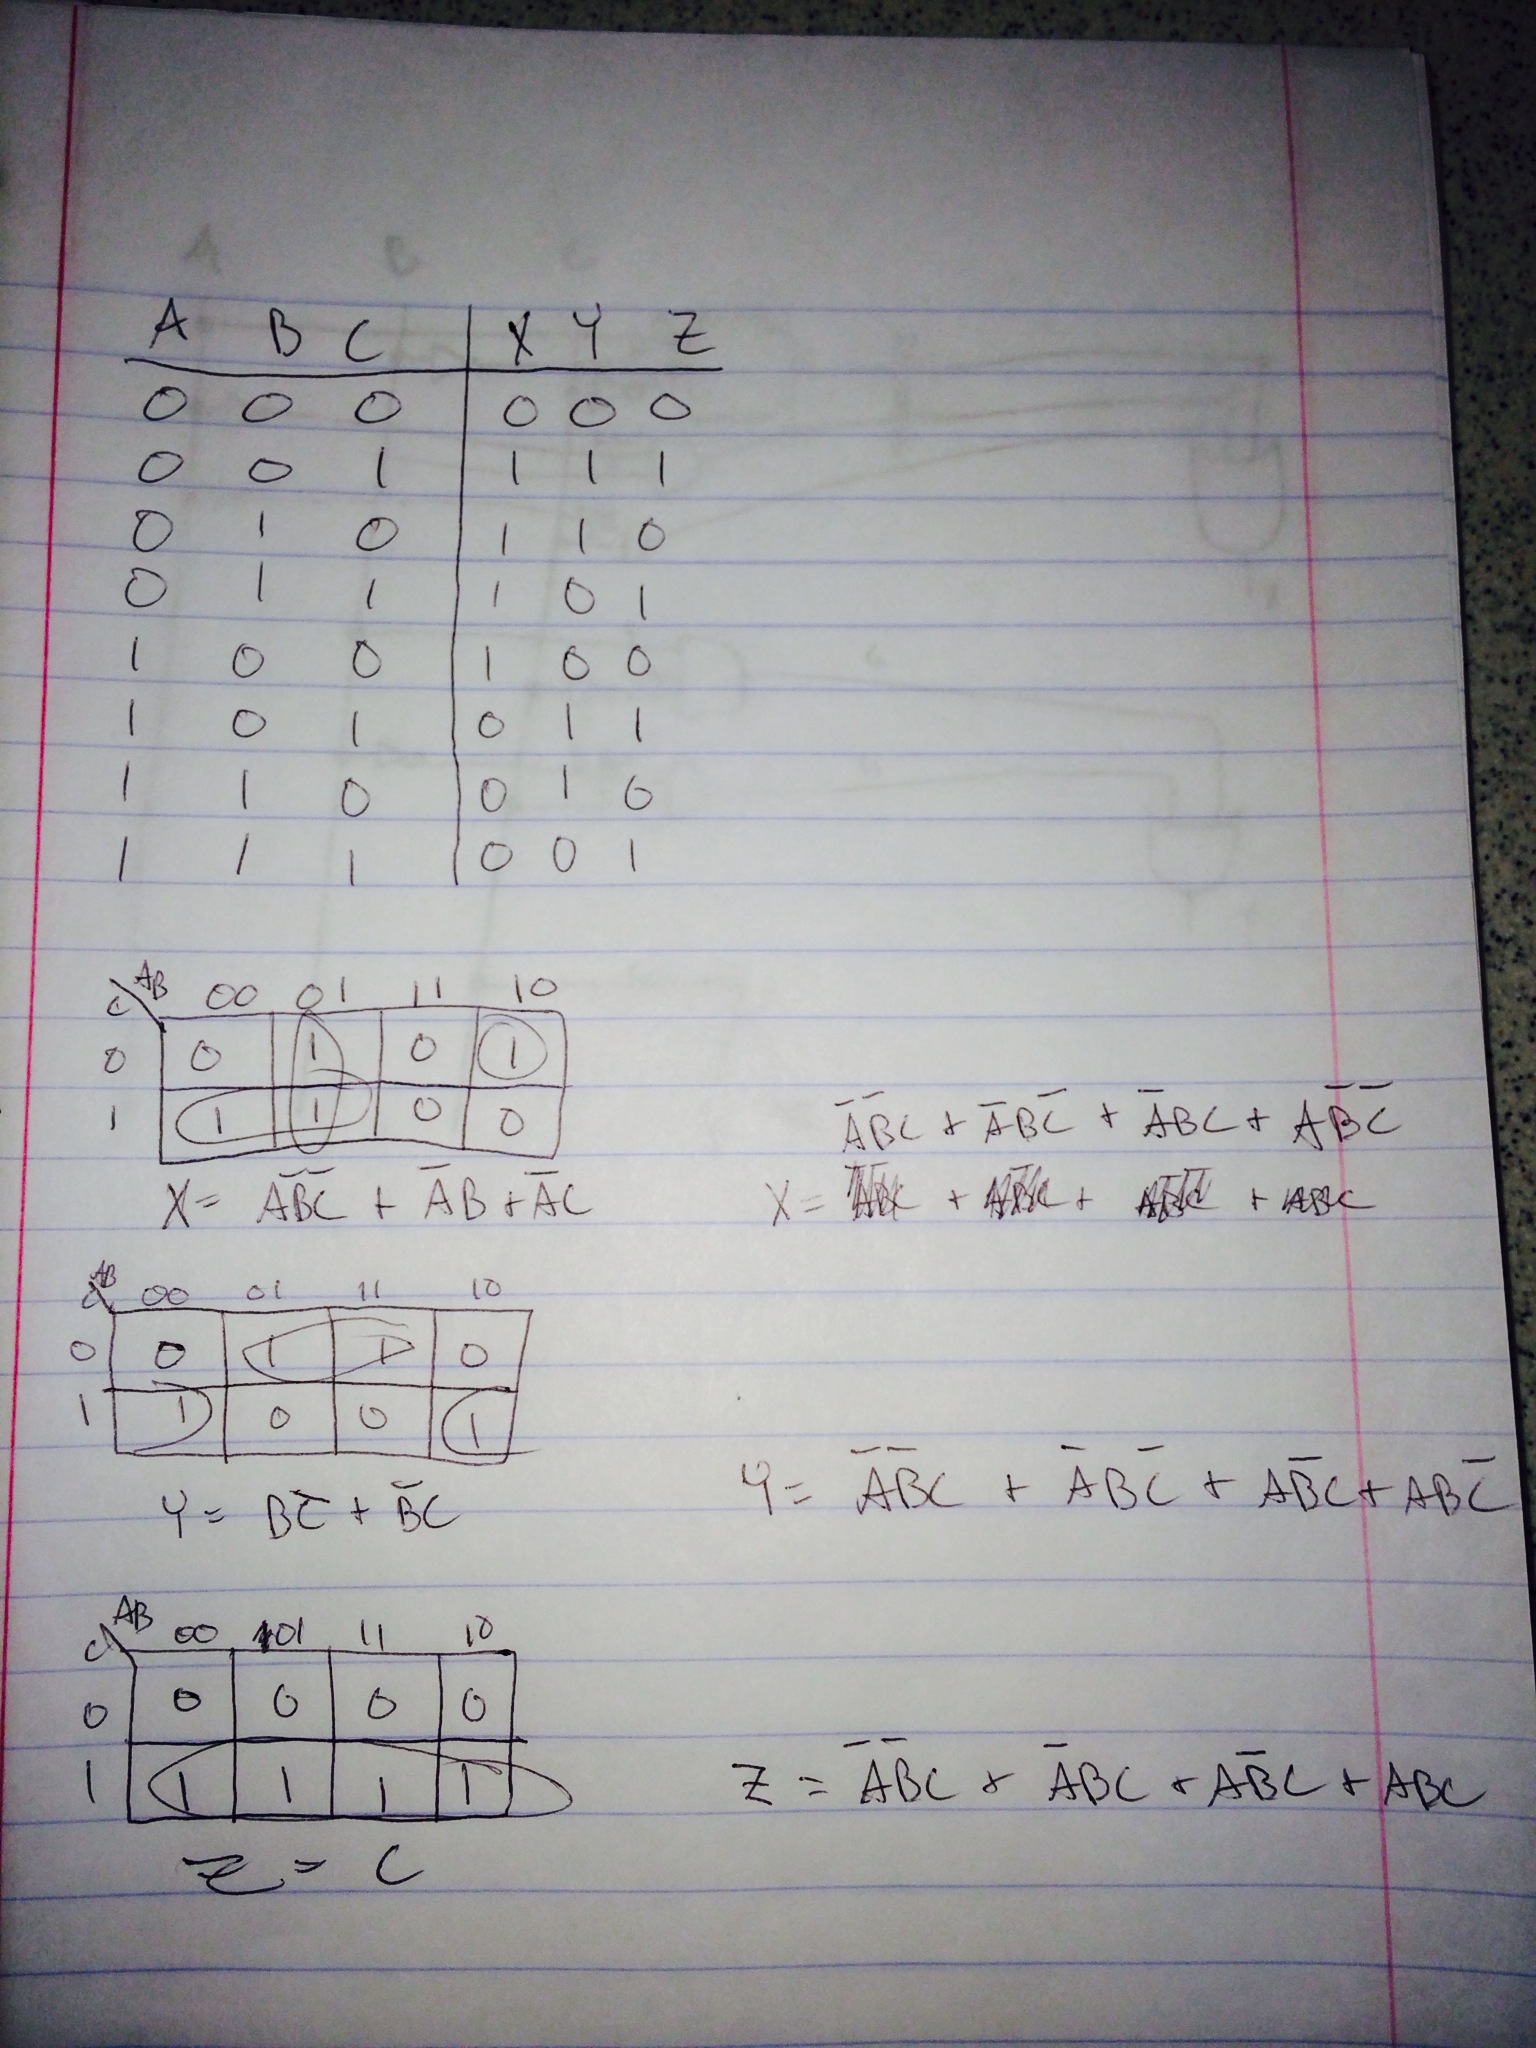 A B C X Y Z
0 0 0 0 0 0
0 0 1 1 1 1
0 1 0 1 1 0
0 1 1 1 0 1
1 0 0 1 0 0
1 0 1 0 1 1
1 1 0 0 1 0
1 1 1 0 0 1
AB
C 00 01 11 10
0 0 1 0 1
1 1 1 0 0
A̅B̅C + A̅BC̅ + A̅BC + AB̅C̅
X = AB̅C̅ + A̅B + A̅C
X = + + +
AB
C 00 01 11 10
0 0 1 1 0
1 1 0 0 1
Y = BC̅ + B̅C
Y = A̅B̅C + A̅BC̅ + AB̅C + ABC̅
AB
C 00 01 11 10
0 0 0 0 0
1 1 1 1 1
Z = A̅B̅C + A̅BC + AB̅C + ABC
Z = C